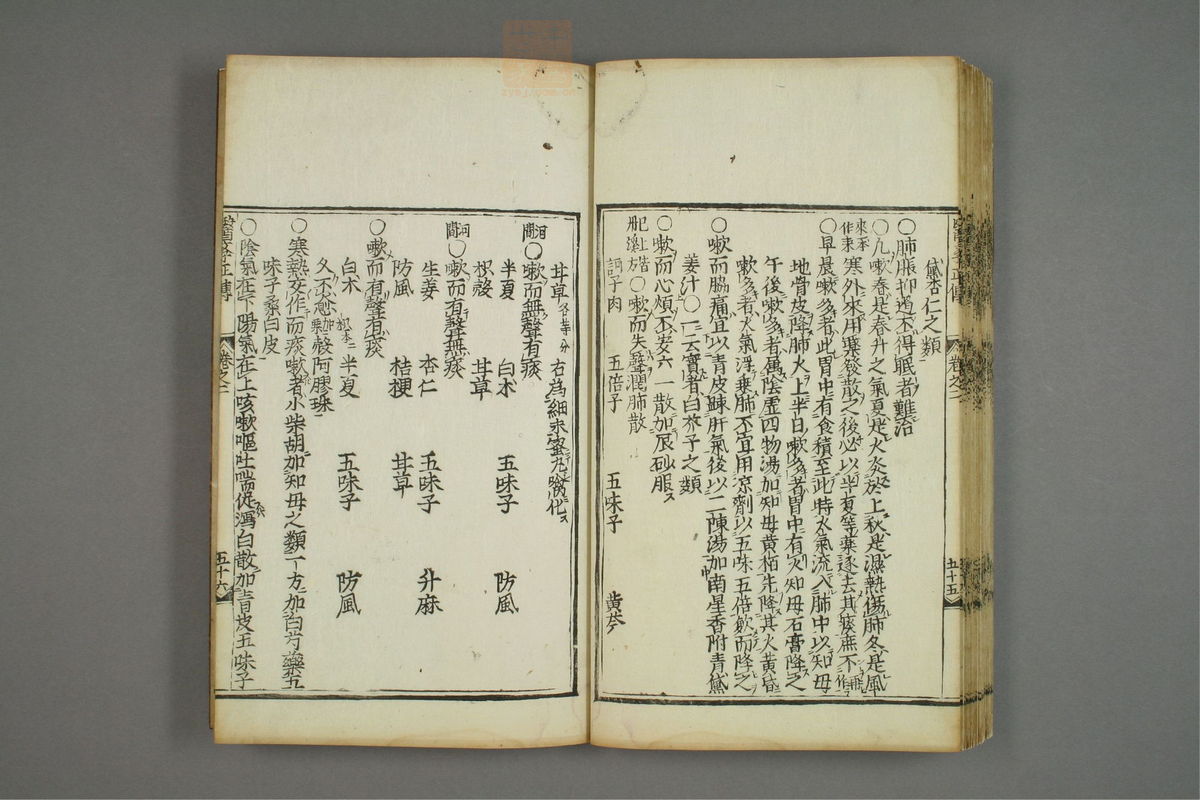 黛杏仁之類
○肺脹抑遏不得眠者難治
○凢嗽春是春升之氣夏是火炎於上秋是濕熱傷肺冬是風
寒外來用藥發散之後必以半夏等藥逐去其痰庶不再來
○早晨嗽多者此胃中有食積至此時火氣流入肺中以知母
地骨皮降肺火上半日嗽多者胃中有火知母石膏降之
午後嗽多者属陰虚四物湯加知母黄栢先降其火黄昏
嗽多者火氣浮乗肺不宜用凉劑以五味五倍歛而降之
○嗽而脇痛宜以青皮踈肝氣後以二陳湯加南星香附青黛
姜汁○一云實者白芥子之類
○嗽而心煩不安六一散加辰砂服
○嗽而失聲潤肺散
訶子肉 五倍子 五味子 黄芩
甘草各等分 右為細末蜜丸噙化
河間○嗽而無聲有痰
半夏 白朮 五味子 防風
枳殻 甘草
河間○嗽而有聲無痰
生姜 杏仁 五味子 升麻
防風 桔梗 甘草
○嗽而有聲有痰
白朮 半夏 五味子 防風
久不愈加枳殻阿膠珠
○寒熱交作而痰嗽者小柴胡加知母之類一方加白芍藥五
味子桑白皮
○陰氣在下陽氣在上咳嗽嘔吐喘促瀉白散加青皮五味子
卷之二
五十五
卷之二
五十六